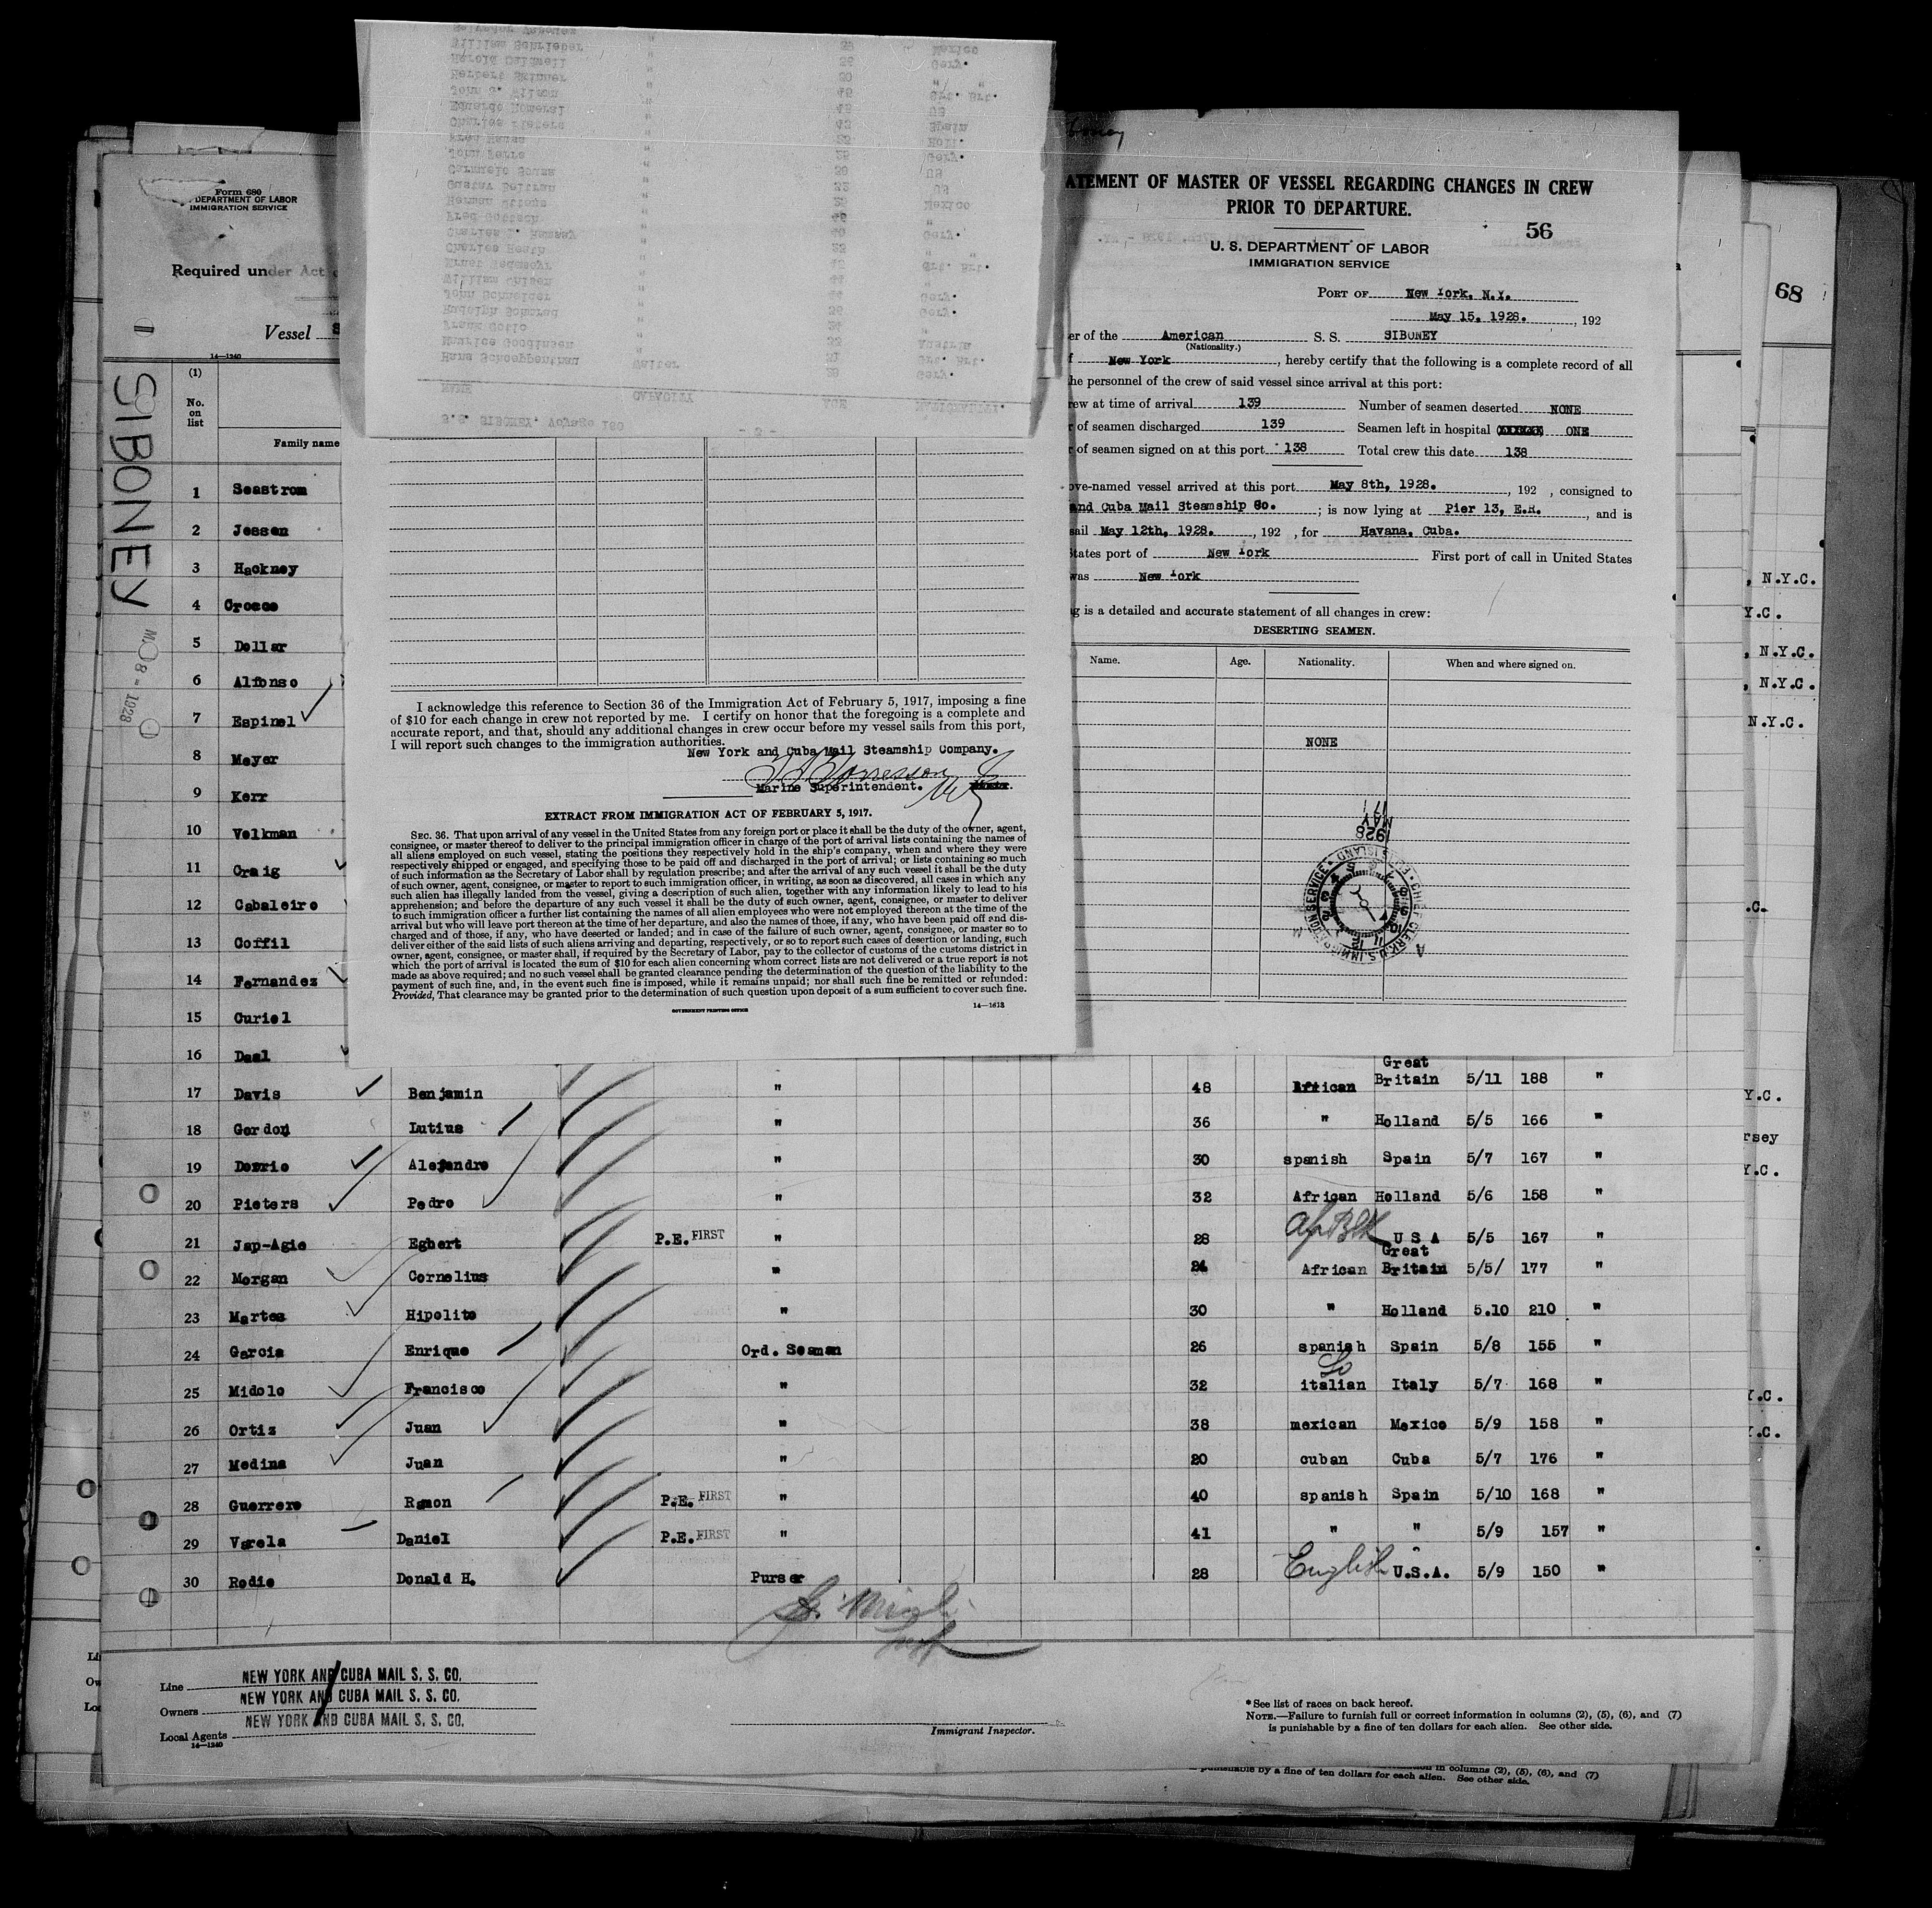 Form 680
DEPARTMENT OF LABOR
IMMIGRATION SERVICE
Required under Act
Vessel S
14—1240
SIBONEY
(1)
No.
on
list
Family name
1 Seastrom
2 Jessen
3 Hackney
4 Crocco
5 Dollar
6 Alfonso
7 Espinel
8 Meyer
9 Kerr
10 Velkman
11 Craig
12 Cabaleiro
13 Coffil
14 Fernandez
15 Curiel
16 Daal
17 Davis Benjamin " 48 African Great Britain 5/11 188 "
18 Gordon Lutius " 36 " Holland 5/5 166 "
19 Dosrio Alejandro " 30 spanish Spain 5/7 167 "
20 Pieters Pedro " 32 African Holland 5/6 158 "
21 Jap-Agie Egbert P.E. FIRST " 28 Af Blk U S A 5/5 167 "
22 Morgan Cornelius " 24 African Great Britain 5/5/ 177 "
23 Martes Hipolito " 30 " Holland 5.10 210 "
24 Garcia Enrique Ord. Seaman 26 spanish Spain 5/8 155 "
25 Midolo Francisco " 32 So italian Italy 5/7 168 "
26 Ortiz Juan " 38 mexican Mexico 5/9 158 "
27 Medina Juan " 20 cuban Cuba 5/7 176 "
28 Guerrero Ramon P.E. FIRST " 40 spanish Spain 5/10 168 "
29 Varela Daniel P.E. FIRST " 41 " " 5/9 157 "
30 Rodie Donald H. Purser 28 English U.S.A. 5/9 150 "
Line NEW YORK AND CUBA MAIL S. S. CO.
Owners NEW YORK AND CUBA MAIL S. S. CO.
Local Agents NEW YORK AND CUBA MAIL S. S. CO.
14—1240
Immigrant Inspector.
*See list of races on back hereof.
NOTE.—Failure to furnish full or correct information in columns (2), (5), (6), and (7)
is punishable by a fine of ten dollars for each alien. See other side.
in columns (2), (5), (6), and (7)
punishable by a fine of ten dollars for each alien. See other side.
William Schrieber " 39 Mexico
Harold Caldwell " 26 Gery.
Herbert Skinner " 20 " "
John G. Wilson " 46 Grt. Brt.
Eduardo Romeral " 43 US
Charles Pieters " 43 Spain
Fred Hansa " Holl.
John Ferra " 28 Gery.
" 30 US
Gustav Beltran " 32 US
Herman Ottoys " Mexico
Fred Gottsch " "
Charles F. Ramsay " 40 Gery.
Charles Heath " 25 " "
" Grt. Brt.
William Chisen " 44 "
John Schneider " 44 Gery.
Rudolph Schmred " 36 Gery.
Frank Gotlo " "
Maurice Goddinsen " Austria
Hans Schoeppenthau Waiter Grt. Brt.
Gery.
NAME CAPACITY AGE NATIONALITY.
S.S. SIBONEY, Voyage 160
I acknowledge this reference to Section 36 of the Immigration Act of February 5, 1917, imposing a fine
of $10 for each change in crew not reported by me. I certify on honor that the foregoing is a complete and
accurate report, and that, should any additional changes in crew occur before my vessel sails from this port,
I will report such changes to the immigration authorities.
New York and Cuba Mail Steamship Company.
Marine Superintendent.
EXTRACT FROM IMMIGRATION ACT OF FEBRUARY 5, 1917.
SEC. 36. That upon arrival of any vessel in the United States from any foreign port or place it shall be the duty of the owner, agent,
consignee, or master thereof to deliver to the principal immigration officer in charge of the port of arrival lists containing the names of
all aliens employed on such vessel, stating the positions they respectively hold in the ship's company, when and where they were
respectively shipped or engaged, and specifying those to be paid off and discharged in the port of arrival; or lists containing so much
of such information as the Secretary of Labor shall by regulation prescribe; and after the arrival of any such vessel it shall be the duty
of such owner, agent, consignee, or master to report to such immigration officer, in writing, as soon as discovered, all cases in which any
such alien has illegally landed from the vessel, giving a description of such alien, together with any information likely to lead to his
apprehension; and before the departure of any such vessel it shall be the duty of such owner, agent, consignee, or master to deliver
to such immigration officer a further list containing the names of all alien employees who were not employed thereon at the time of the
arrival but who will leave port thereon at the time of her departure, and also the names of those, if any, who have been paid off and dis-
charged and of those, if any, who have deserted or landed; and in case of the failure of such owner, agent, consignee, or master so to
deliver either of the said lists of such aliens arriving and departing, respectively, or so to report such cases of desertion or landing, such
owner, agent, consignee, or master shall, if required by the Secretary of Labor, pay to the collector of customs of the customs district in
which the port of arrival is located the sum of $10 for each alien concerning whom correct lists are not delivered or a true report is not
made as above required; and no such vessel shall be granted clearance pending the determination of the question of the liability to the
payment of such fine, and, in the event such fine is imposed, while it remains unpaid; nor shall such fine be remitted or refunded:
Provided, That clearance may be granted prior to the determination of such question upon deposit of a sum sufficient to cover such fine.
GOVERNMENT PRINTING OFFICE
14—1613
ATEMENT OF MASTER OF VESSEL REGARDING CHANGES IN CREW
PRIOR TO DEPARTURE.
56
U. S. DEPARTMENT OF LABOR
IMMIGRATION SERVICE
PORT OF New York, N.Y.
May 15, 1928. , 192
er of the American S. S. SIBONEY
(Nationality.)
f New York , hereby certify that the following is a complete record of all
he personnel of the crew of said vessel since arrival at this port:
rew at time of arrival 139 Number of seamen deserted NONE
r of seamen discharged 139 Seamen left in hospital ONE
r of seamen signed on at this port 138 Total crew this date 138
ove-named vessel arrived at this port May 8th, 1928. , 192 , consigned to
and Cuba Mail Steamship Co. ; is now lying at Pier 13, E.R. , and is
sail May 12th, 1928. , 192 , for Havana, Cuba.
States port of New York First port of call in United States
was New York
g is a detailed and accurate statement of all changes in crew:
DESERTING SEAMEN.
Name. Age. Nationality. When and where signed on.
NONE
1928
MAY
17
CHIEF CLERK U.S. IMMIGRATION SERVICE
68
, N.Y.C.
Y.C.
, N.Y.C.
, N.Y.C.
N.Y.C.
.C.
Y.C.
rsey
Y.C.
Y.C.
Y.C.